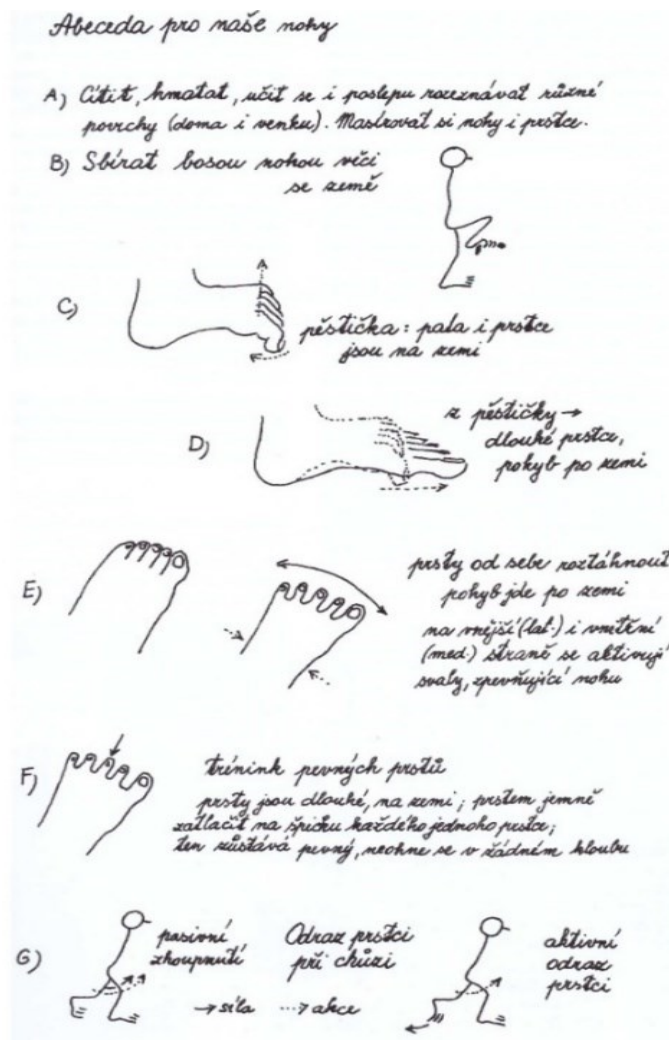 Abeceda pro naše nohy
A) Cítit, hmatat, učit se i poslepu rozeznávat různé
povrchy (doma i venku). Masírovat si nohy i prstce.
B) Sbírat bosou nohou věci
se země
C)
pěstička : pata i prstce
jsou na zemi
D)
z pěstičky →
dlouhé prstce,
pohyb po zemi
E)
prsty od sebe roztáhnout
pohyb jde po zemi
na vnější (lat.) i vnitřní
(med.) straně se aktivují
svaly, zpevňující nohu
F)
trénink pevných prstů
prsty jsou dlouhé, na zemi ; prstem jemně
zatlačit na špičku každého jednoho prstce ;
ten zůstává pevný, neohne se v žádném kloubu
G)
pasivní
zhoupnutí
Odraz prstci
při chůzi
→ síla ⇢ akce
aktivní
odraz
prstci